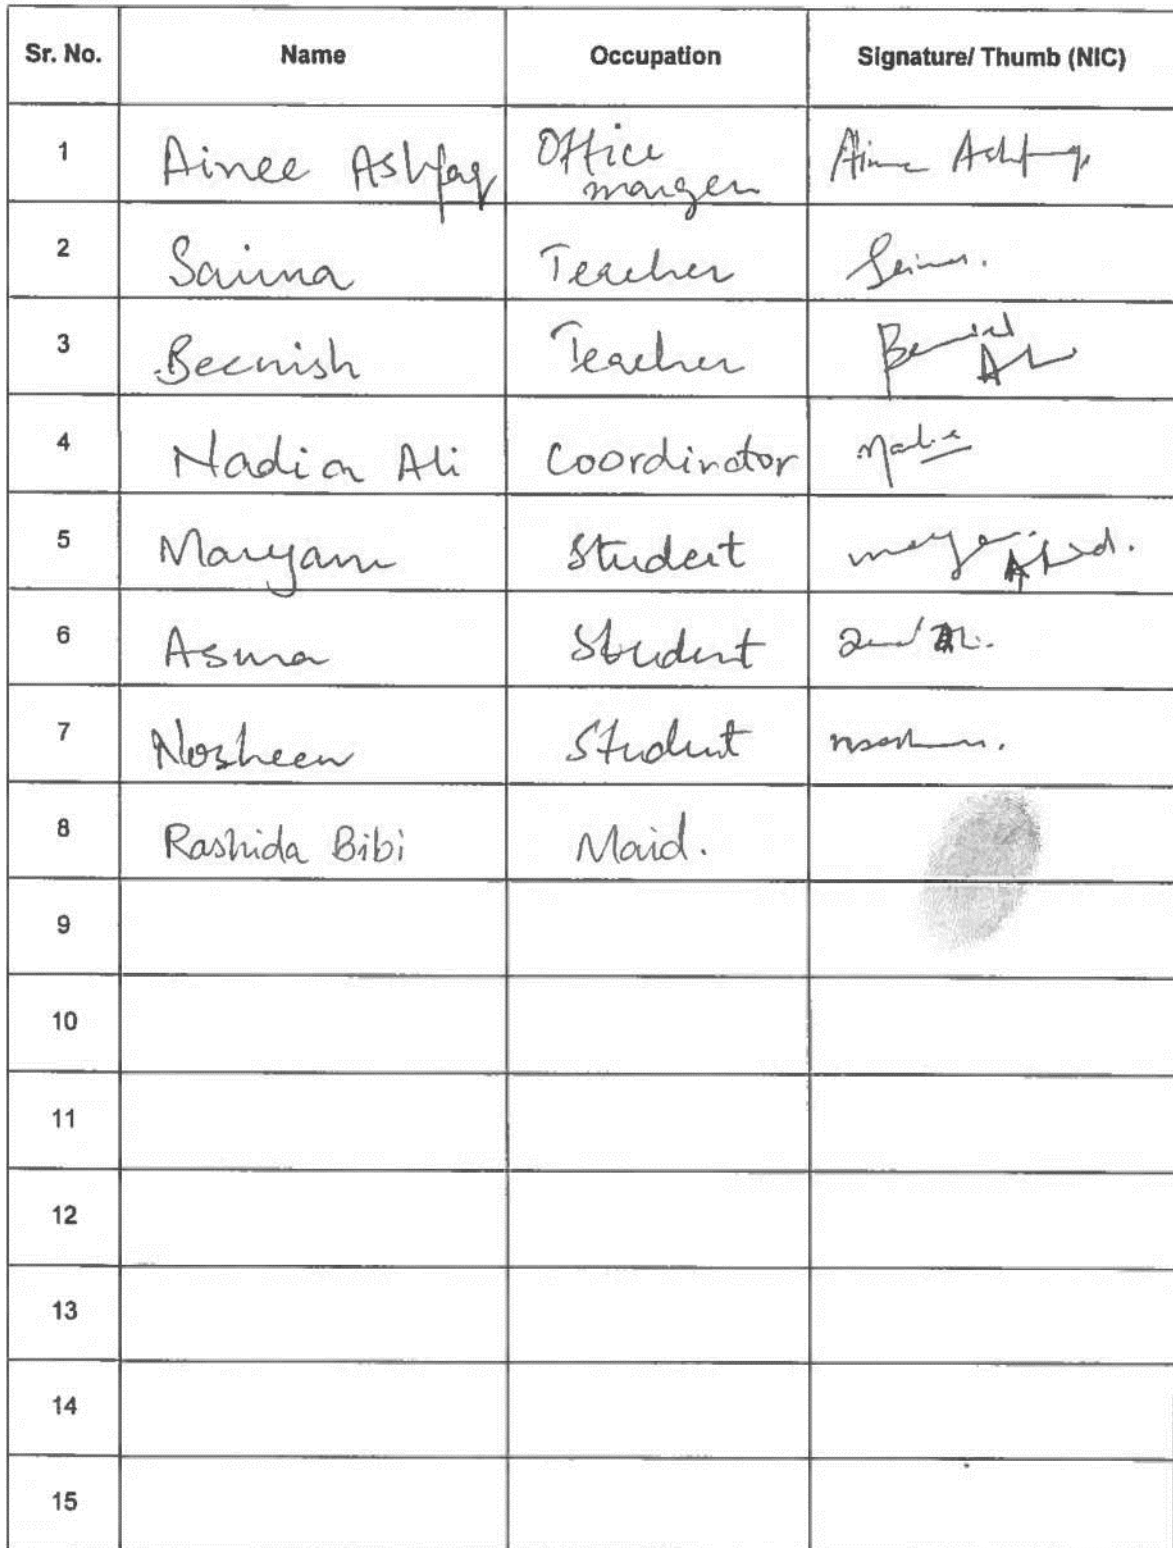 Sr. No. Name Occupation Signature/ Thumb (NIC)
1 Ainee Ashfaq Office Aine Ashfaq
mangen
2 Saima Teacher Saima.
3 Beenish Teacher
4 Nadia Ali Coordinator Nadia
5 Maryam Student
6 Asma Student
7 Nosheen Student
8 Rashida Bibi Maid.
9
10
11
12
13
14
15